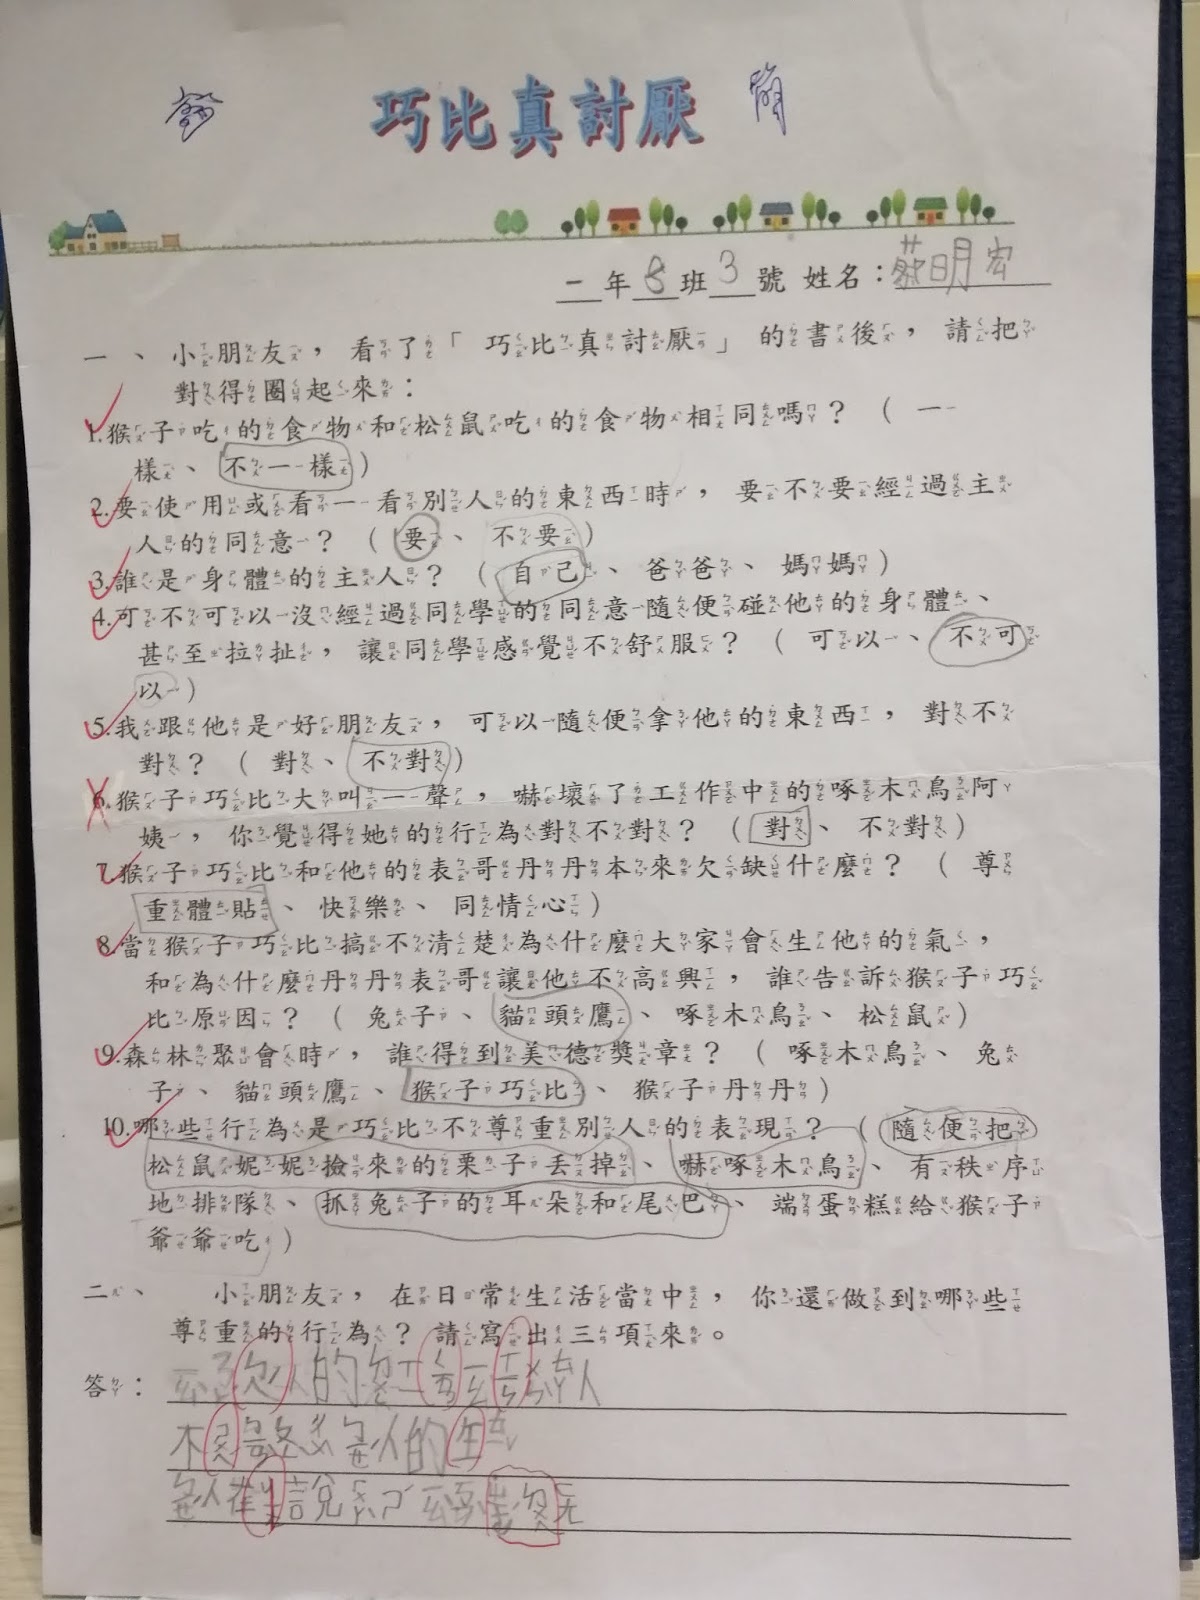 巧比真討厭
一年8班3號 姓名：蔡明宏
一、小朋友，看了「巧比真討厭」的書後，請把
對得圈起來：
1.猴子吃的食物和松鼠吃的食物相同嗎？（一
樣、不一樣）
2.要使用或看一看別人的東西時，要不要經過主
人的同意？（要、不要）
3.誰是身體的主人？（自己、爸爸、媽媽）
4.可不可以沒經過同學的同意隨便碰他的身體、
甚至拉扯，讓同學感覺不舒服？（可以、不可
以）
5.我跟他是好朋友，可以隨便拿他的東西，對不
對？（對、不對）
6.猴子巧比大叫一聲，嚇壞了工作中的啄木鳥阿
姨，你覺得她的行為對不對？（對、不對）
7.猴子巧比和他的表哥丹丹本來欠缺什麼？（尊
重體貼、快樂、同情心）
8.當猴子巧比搞不清楚為什麼大家會生他的氣，
和為什麼丹丹表哥讓他不高興，誰告訴猴子巧
比原因？（兔子、貓頭鷹、啄木鳥、松鼠）
9.森林聚會時，誰得到美德獎章？（啄木鳥、兔
子、貓頭鷹、猴子巧比、猴子丹丹）
10.哪些行為是巧比不尊重別人的表現？（隨便把
松鼠妮妮撿來的栗子丟掉、嚇啄木鳥、有秩序
地排隊、抓兔子的耳朵和尾巴、端蛋糕給猴子
爺爺吃）
二、小朋友，在日常生活當中，你還做到哪些
尊重的行為？請寫出三項來。
答：